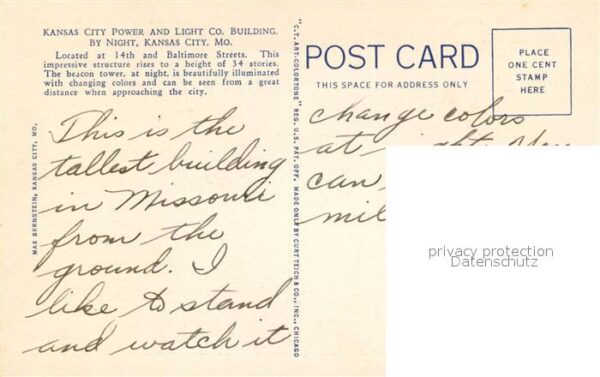 KANSAS CITY POWER AND LIGHT CO. BUILDING.
BY NIGHT, KANSAS CITY, MO.
Located at 14th and Baltimore Streets. This
impressive structure rises to a height of 34 stories.
The beacon tower, at night, is beautifully illuminated
with changing colors and can be seen from a great
distance when approaching the city.
This is the
tallest building
in Missouri
from the
ground. I
like to stand
and watch it
MAX BERNSTEIN, KANSAS CITY, MO.
"C.T. ART-COLORTONE" REG. U.S. PAT. OFF. MADE ONLY BY CURT TEICH & CO., INC., CHICAGO
POST CARD
THIS SPACE FOR ADDRESS ONLY
PLACE
ONE CENT
STAMP
HERE
change colors
at night. You
can
privacy protection
Datenschutz